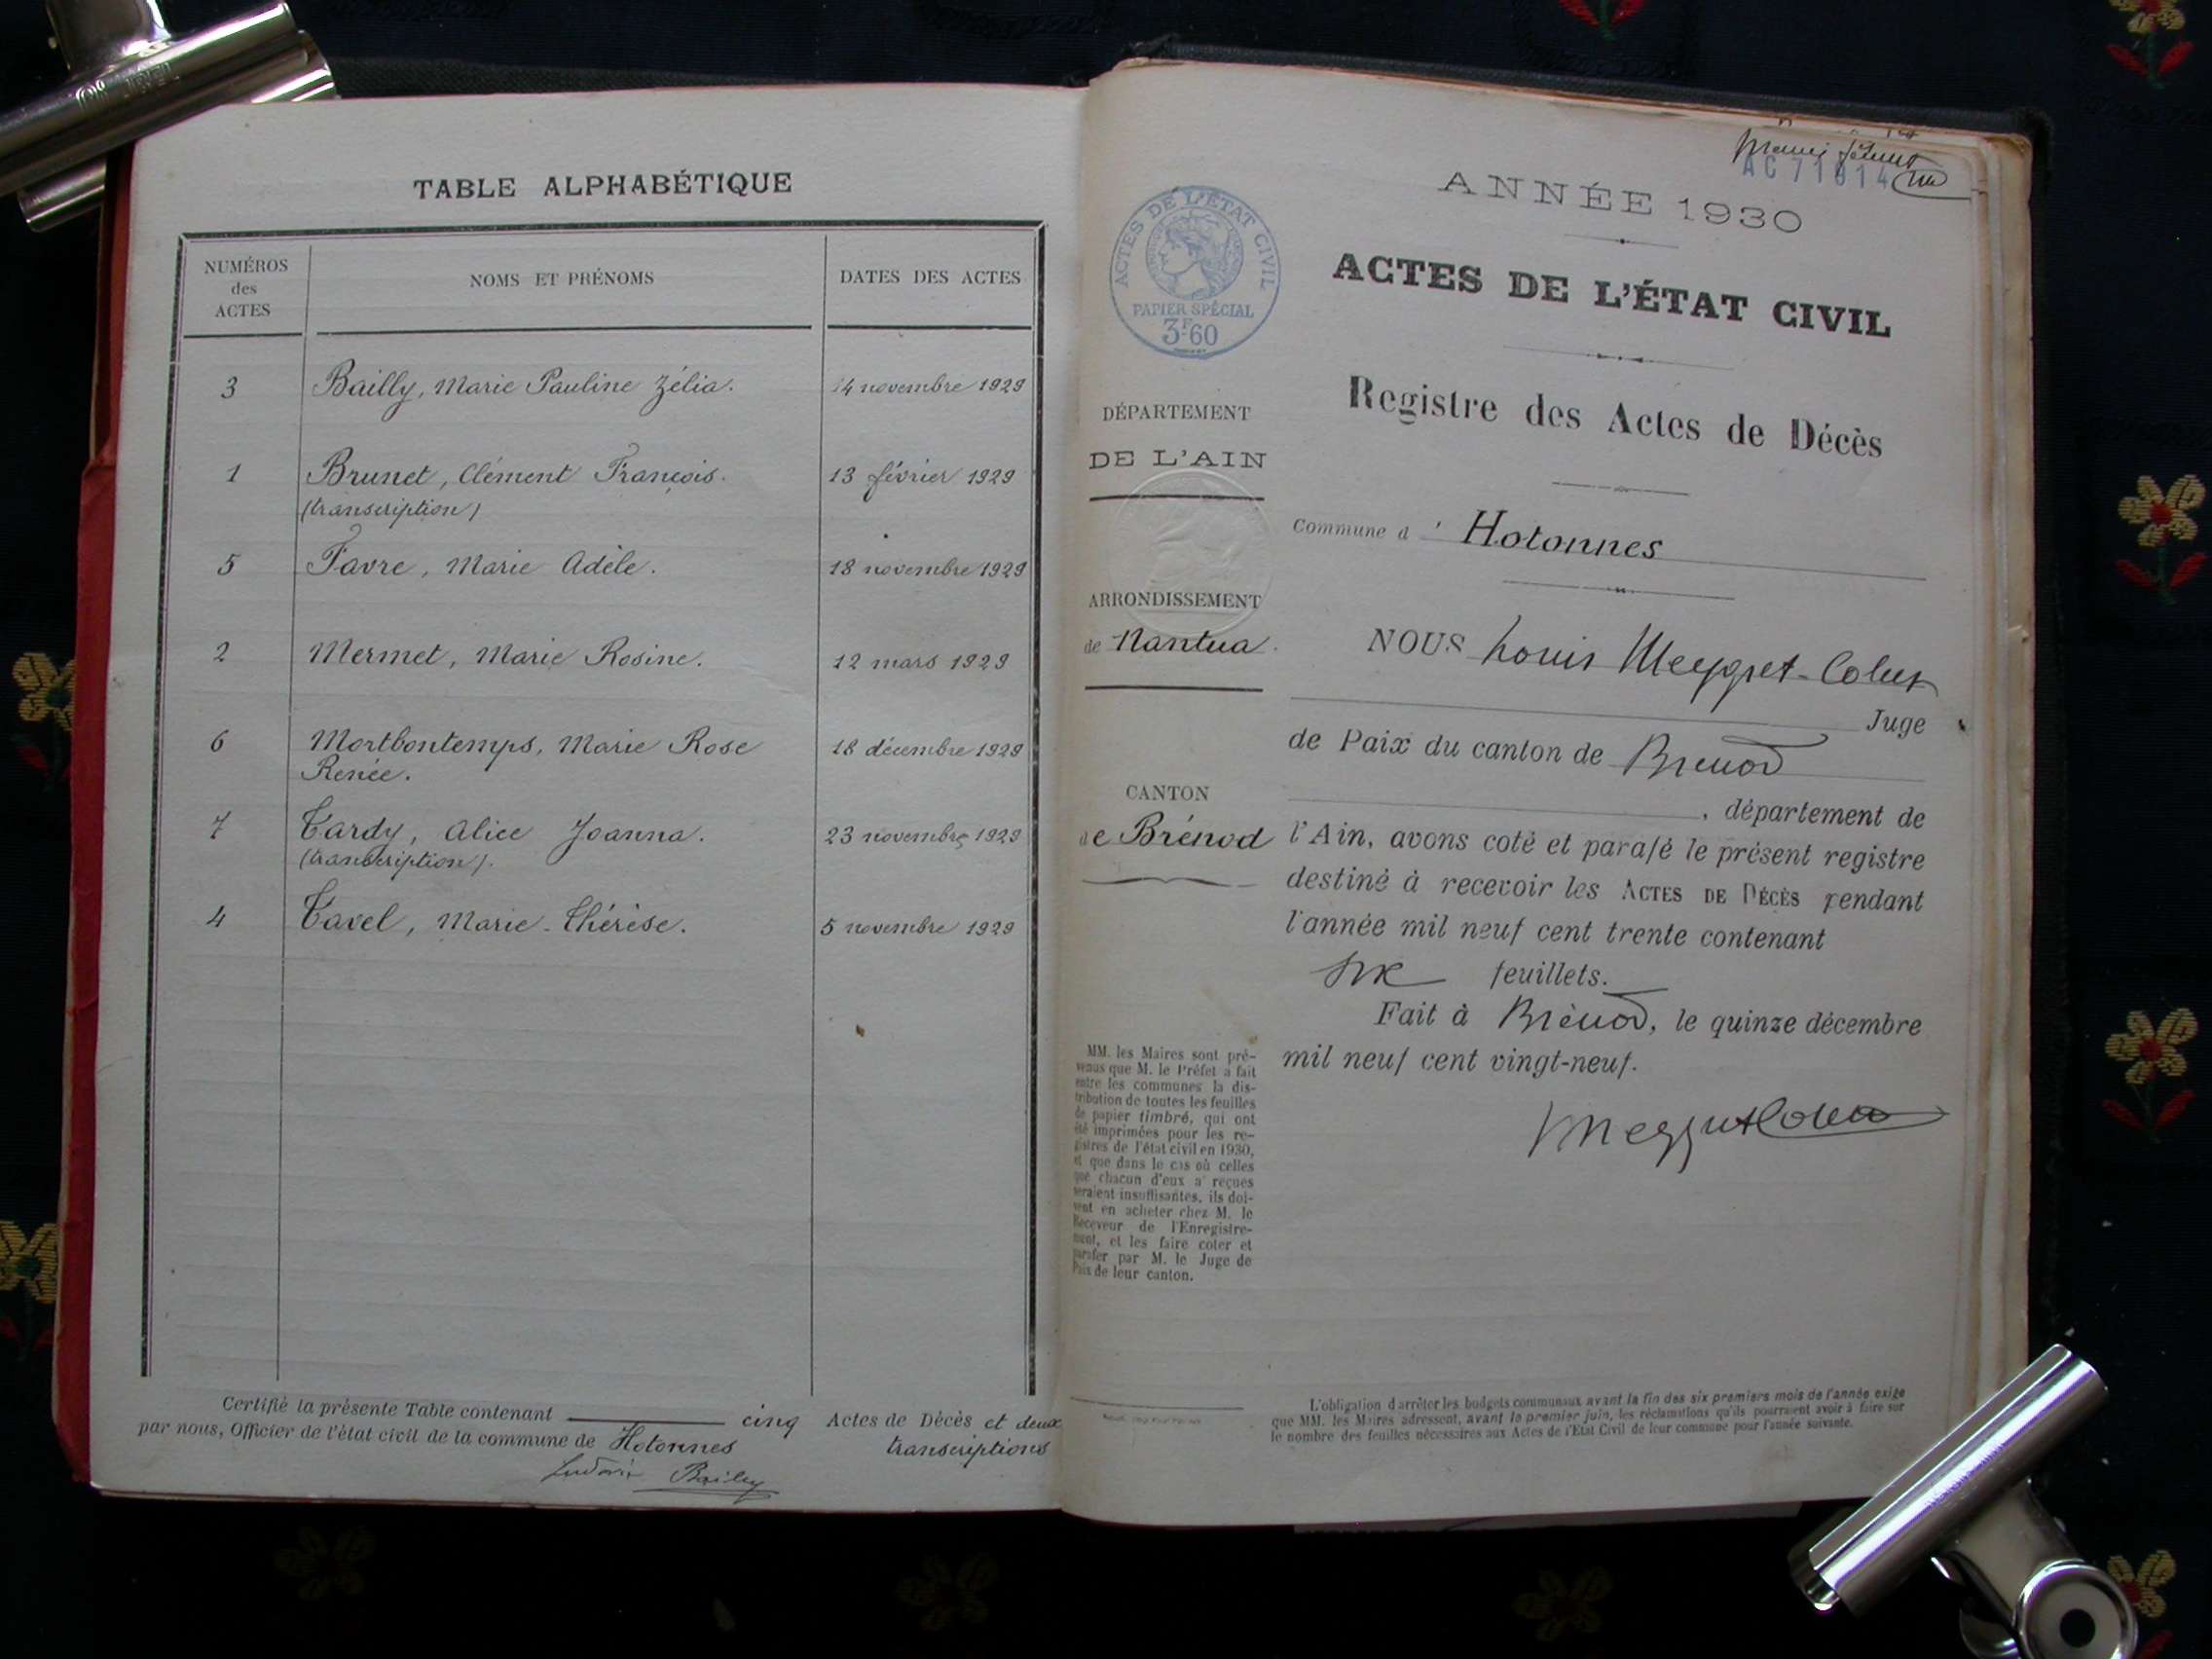 TABLE ALPHABÉTIQUE
NUMÉROS
des
ACTES
NOMS ET PRÉNOMS
DATES DES ACTES
3 Bailly, Marie Pauline Zélia. 14 novembre 1929
1 Brunet, Clément François. 13 février 1929
(transcription)
5 Favre, Marie Adèle. 18 novembre 1929
2 Mermet, Marie Rosine. 12 mars 1929
6 Mortbontemps, Marie Rose 18 décembre 1929
Renée.
7 Tardy, Alice Joanna. 23 novembre 1929
(transcription).
4 Tavel, Marie-Thérèse. 5 novembre 1929
Certifié la présente Table contenant cinq Actes de Décès et deux
par nous, Officier de l'état civil de la commune de Hotonnes transcriptions
Ludovic Bailly
AC 71014
ANNÉE 1930
ACTES DE L'ÉTAT CIVIL
PAPIER SPÉCIAL
3F60
ACTES DE L'ÉTAT CIVIL
Registre des Actes de Décès
DÉPARTEMENT
DE L'AIN
Commune d' Hotonnes
ARRONDISSEMENT
de Nantua.
CANTON
de Brénod
NOUS Louis Meygret-Collet
Juge
de Paix du canton de Brenod
, département de
l'Ain, avons coté et parafé le présent registre
destiné à recevoir les ACTES DE DÉCÈS pendant
l'année mil neuf cent trente contenant
six feuillets.
Fait à Brénod, le quinze décembre
mil neuf cent vingt-neuf.
MM. les Maires sont pré-
venus que M. le Préfet a fait
entre les communes la dis-
tribution de toutes les feuilles
de papier timbré, qui ont
été imprimées pour les re-
gistres de l'état civil en 1930,
et que dans le cas où celles
que chacun d'eux a reçues
seraient insuffisantes, ils doi-
vent en acheter chez M. le
Receveur de l'Enregistre-
ment, et les faire coter et
parafer par M. le Juge de
Paix de leur canton.
L'obligation d'arrêter les budgets communaux avant la fin des six premiers mois de l'année exige
que MM. les Maires adressent, avant le premier juin, les réclamations qu'ils pourraient avoir à faire sur
le nombre des feuilles nécessaires aux Actes de l'Etat Civil de leur commune pour l'année suivante.